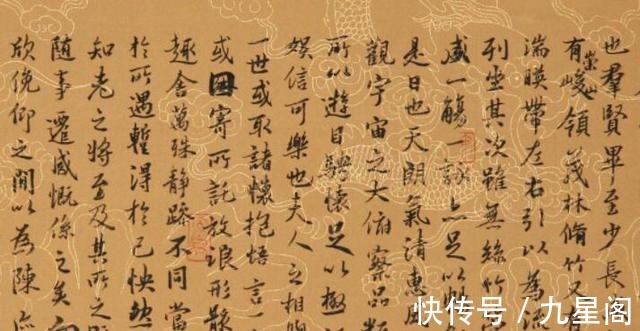 也羣賢畢至少長
有崇山峻領茂林脩竹又
湍暎帶左右引以為流
列坐其次雖無絲竹
盛一觴一詠亦足以暢
是日也天朗氣清惠
觀宇宙之大俯察品類
所以遊目騁懷足以極
娛信可樂也夫人之相
一世或取諸懷抱悟言一
或因寄所託放浪形骸
趣舍萬殊静躁不同當
於所遇蹔得於己怏然
知老之將至及其所之
隨事遷感慨係之矣向
欣俛仰之閒以為陳
快传号／九星阁